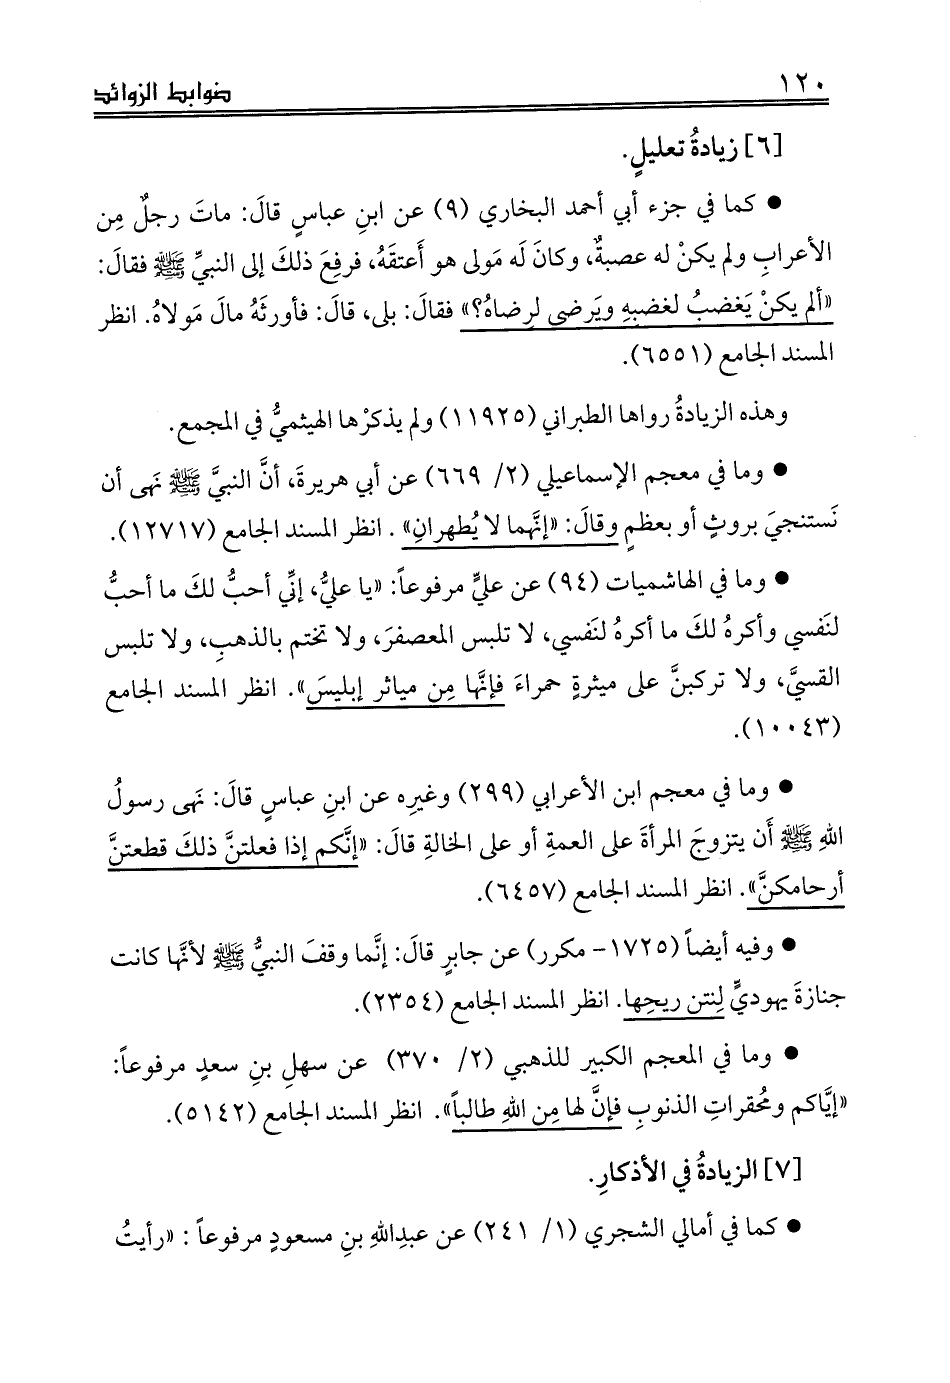 ١٢٠
ضوابط الزوائد
[٦] زيادةُ تعليلٍ.
● كما في جزء أبي أحمد البخاري (٩) عن ابنِ عباسٍ قالَ: ماتَ رجلٌ مِن
الأعرابِ ولم يكنْ له عصبةٌ، وكانَ لَه مَولى هو أَعتقَهُ، فرفِعَ ذلكَ إلى النبيِّ ﷺ فقالَ:
«ألم يكنْ يَغضبُ لغضبِهِ ويَرضى لرضاهُ؟» فقالَ: بلى، قالَ: فأورثَهُ مالَ مَولاهُ. انظر
المسند الجامع (٦٥٥١).
وهذه الزيادةُ رواها الطبراني (١١٩٢٥) ولم يذكرْها الهيثميُّ في المجمع.
● وما في معجم الإسماعيلي (٢/ ٦٦٩) عن أبي هريرةَ، أنَّ النبيَّ ﷺ نَهى أن
نَستنجيَ بروثٍ أو بعظمٍ وقالَ: «إنَّهما لا يُطهرانِ» . انظر المسند الجامع (١٢٧١٧).
● وما في الهاشميات (٩٤) عن عليٍّ مرفوعاً: «يا عليُّ، إنِّي أحبُّ لكَ ما أحبُّ
لنَفسي وأكرهُ لكَ ما أكرهُ لنَفسي، لا تلبس المعصفرَ، ولا تختم بالذهبِ، ولا تلبس
القسيَّ، ولا تركبنَّ على ميثرةٍ حمراءَ فإنَّها مِن مياثر إبليسَ». انظر المسند الجامع
(١٠٠٤٣).
● وما في معجم ابن الأعرابي (٢٩٩) وغيرِه عن ابنِ عباسٍ قالَ: نَهى رسولُ
اللهِ ﷺ أَن يتزوجَ المرأةَ على العمةِ أو على الخالةِ قالَ: «إنَّكم إذا فعلتنَّ ذلكَ قطعتنَّ
أرحامكنَّ». انظر المسند الجامع (٦٤٥٧).
● وفيه أيضاً (١٧٢٥- مكرر) عن جابرٍ قالَ: إنَّما وقفَ النبيُّ ﷺ لأنَّها كانت
جنازةَ يهوديٍّ لِنتن ريحِها. انظر المسند الجامع (٢٣٥٤).
● وما في المعجم الكبير للذهبي (٢/ ٣٧٠) عن سهلِ بنِ سعدٍ مرفوعاً:
«إيَّاكم ومحُقراتِ الذنوبِ فإنَّ لها مِن اللهِ طالباً». انظر المسند الجامع (٥١٤٢).
[٧] الزيادةُ في الأذكارِ.
● كما في أمالي الشجري (١/ ٢٤١) عن عبدِاللهِ بنِ مسعودٍ مرفوعاً : «رأيتُ